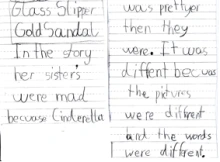 Glass Slipper
Gold Sandal
In the story
her sister's
were mad
becuase Cinderella
was prettyer
then they
were. It was
diffent becuas
the pictures
were diffrent
and the words
were diffrent.